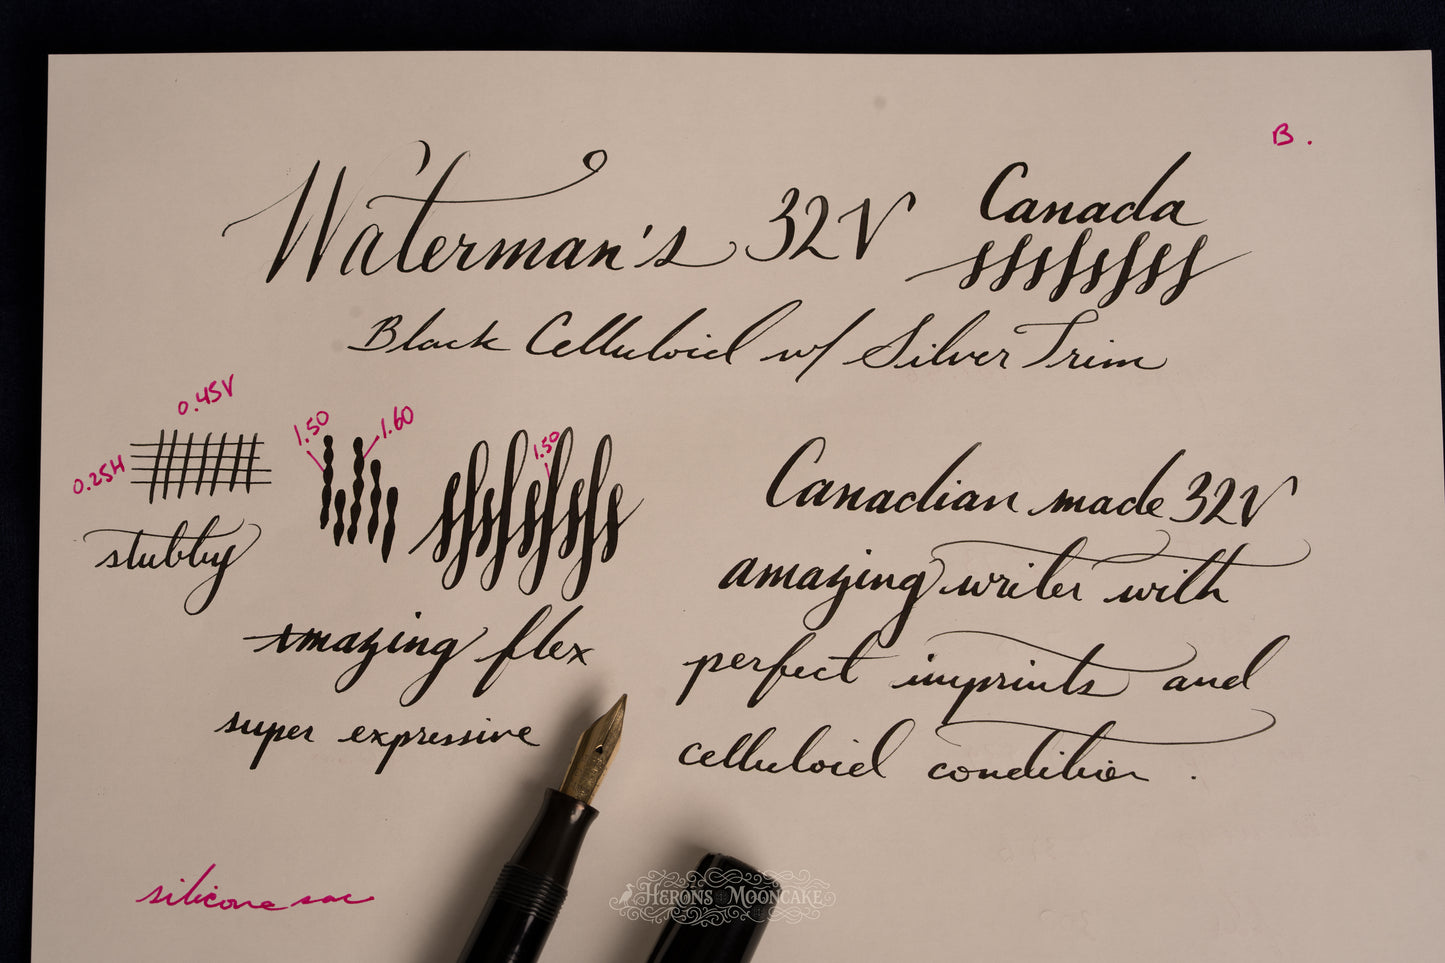 B.
Waterman's 32V Canada
Black Celluloid w/ Silver Trim
0.45V
0.25H
stubby
1.50
1.60
1.50
amazing flex
super expressive
Canadian made 32V
amazing writer with
perfect imprints and
celluloid condition.
silicone sac
HERONS MOONCAKE